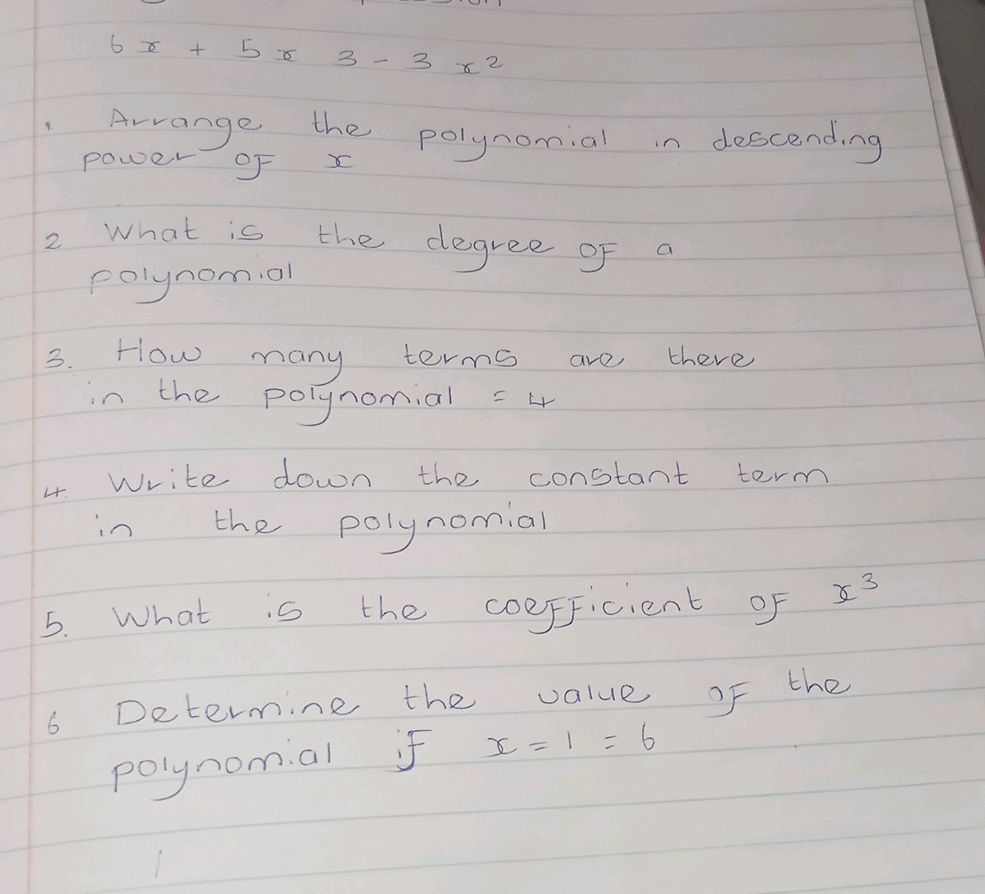 6x + 5x 3 - 3 x²
1 Arrange the polynomial in descending
power of x
2 What is the degree of a
polynomial
3. How many terms are there
in the polynomial = 4
4. Write down the constant term
in the polynomial
5. What is the coefficient of x³
6 Determine the value of the
polynomial if x = 1 = 6